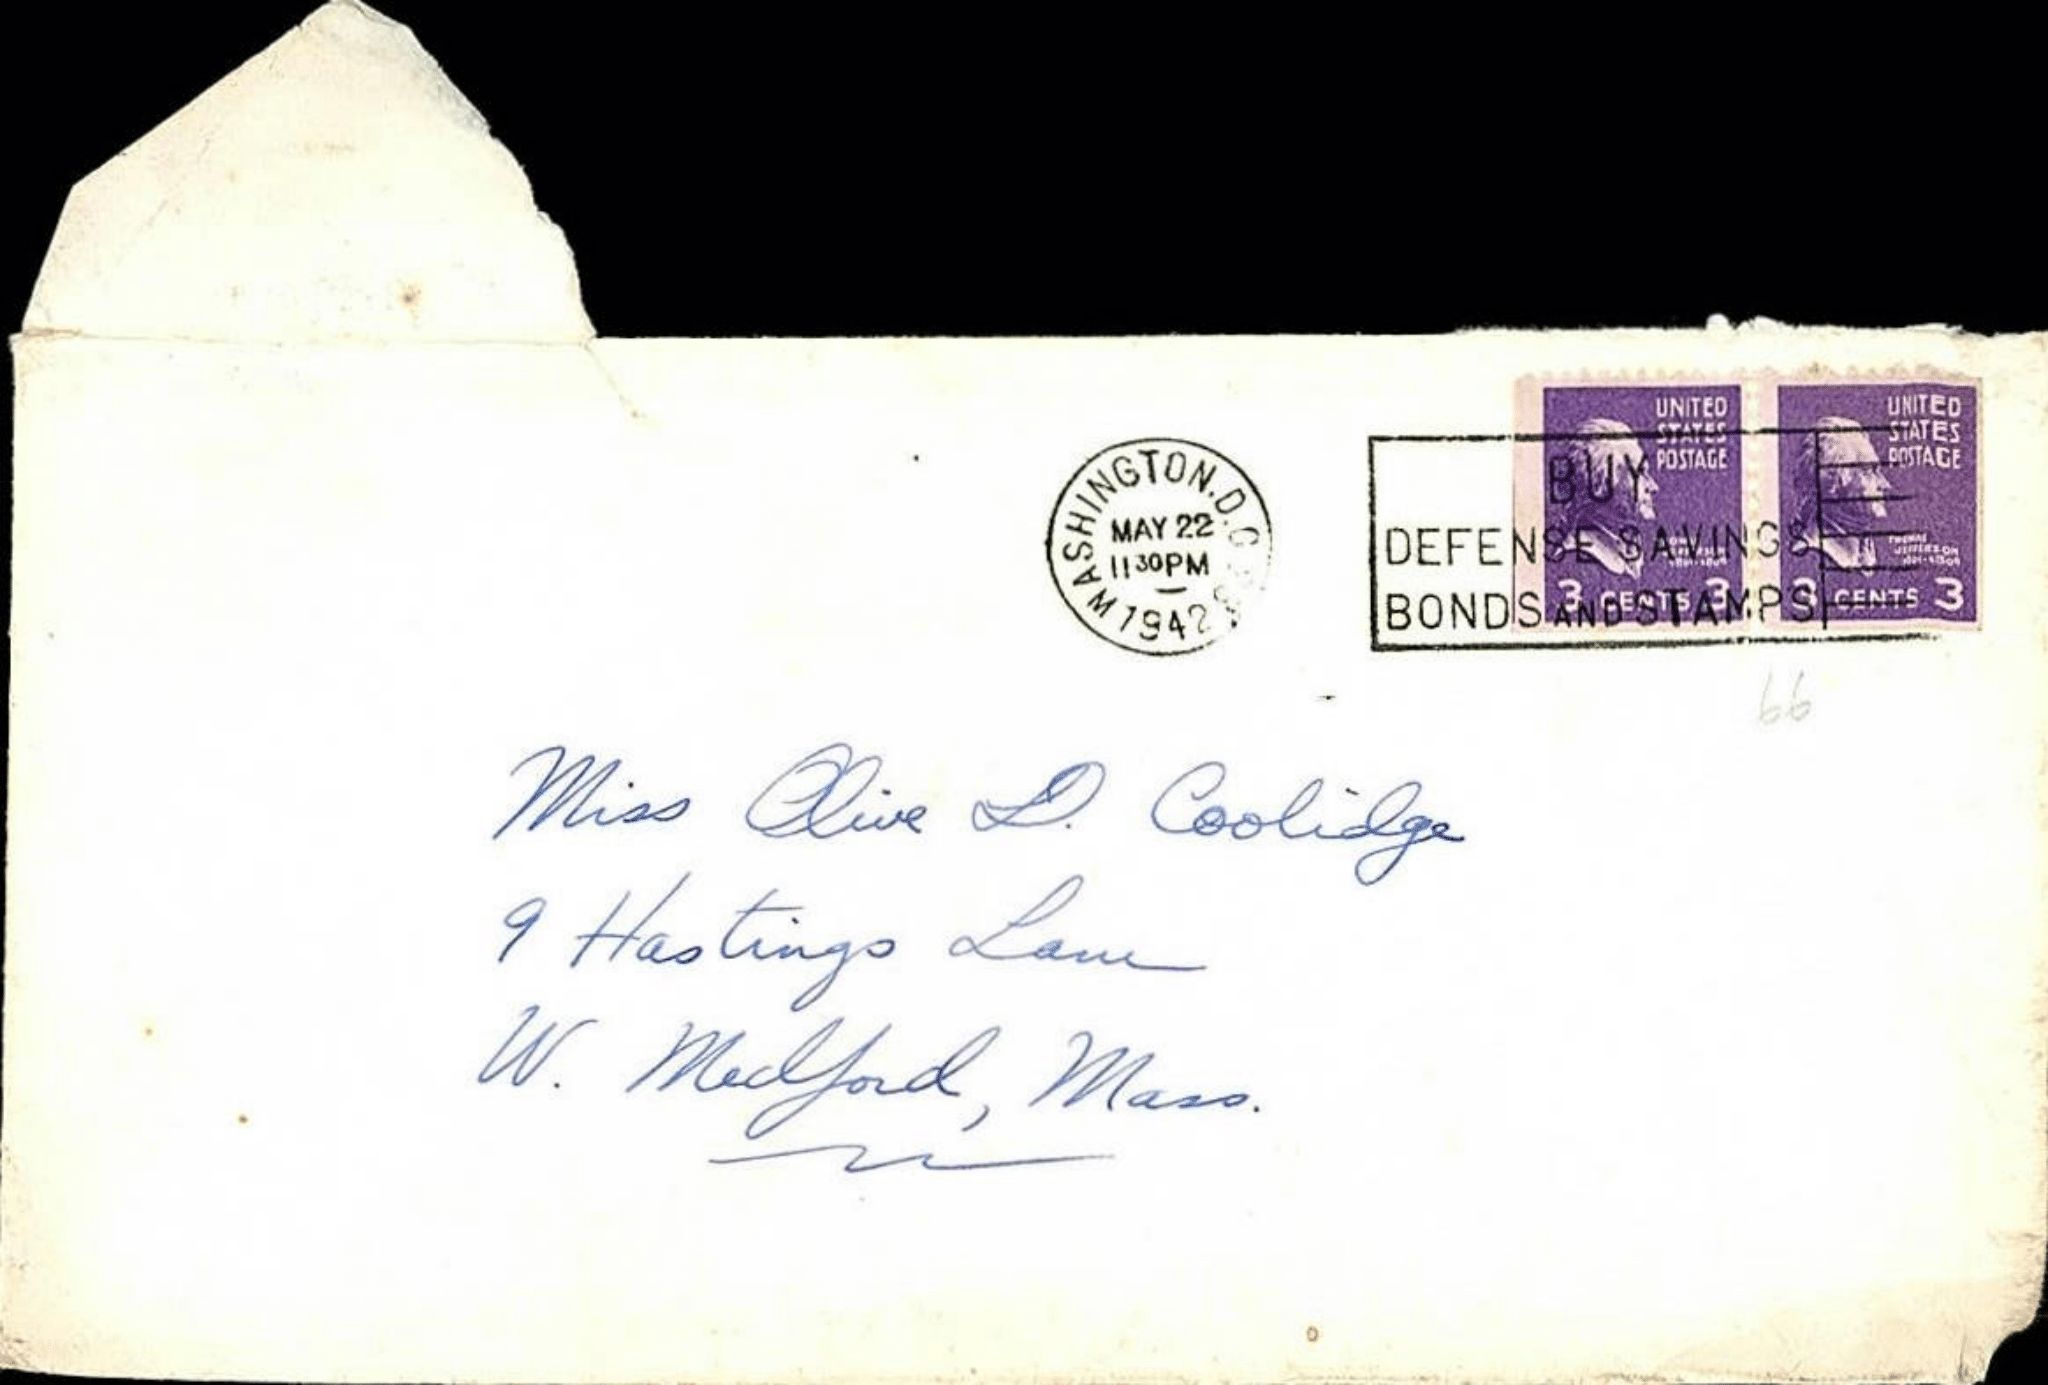 WASHINGTON, D.C.
MAY 22
11 30 PM
1942
BUY
DEFENSE SAVINGS
BONDS AND STAMPS
UNITED
STATES
POSTAGE
3 CENTS 3
UNITED
STATES
POSTAGE
THOMAS
JEFFERSON
3 CENTS 3
66
Miss Olive D. Coolidge
9 Hastings Lane
W. Medford, Mass.